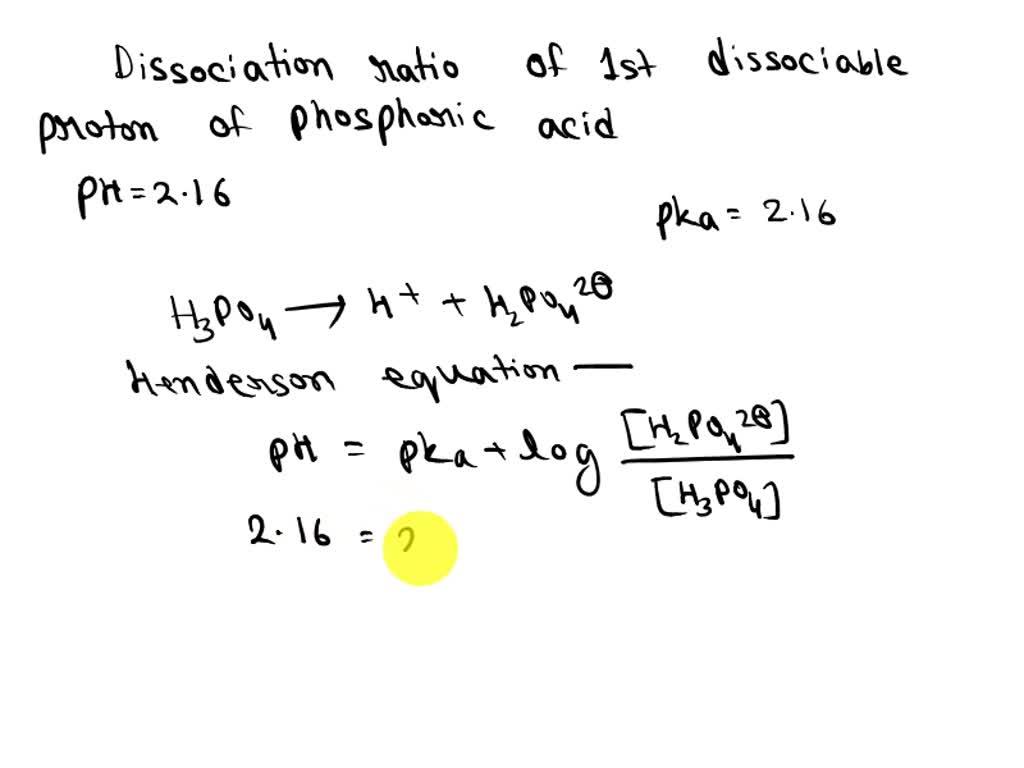 Dissociation ratio of 1st dissociable
proton of phosphoric acid
pH = 2.16
pka = 2.16
H₃PO₄ ⟶ H⁺ + H₂PO₄²⊖
Henderson equation —
pH = pka + log [H₂PO₄²⊖] / [H₃PO₄]
2.16 = 2